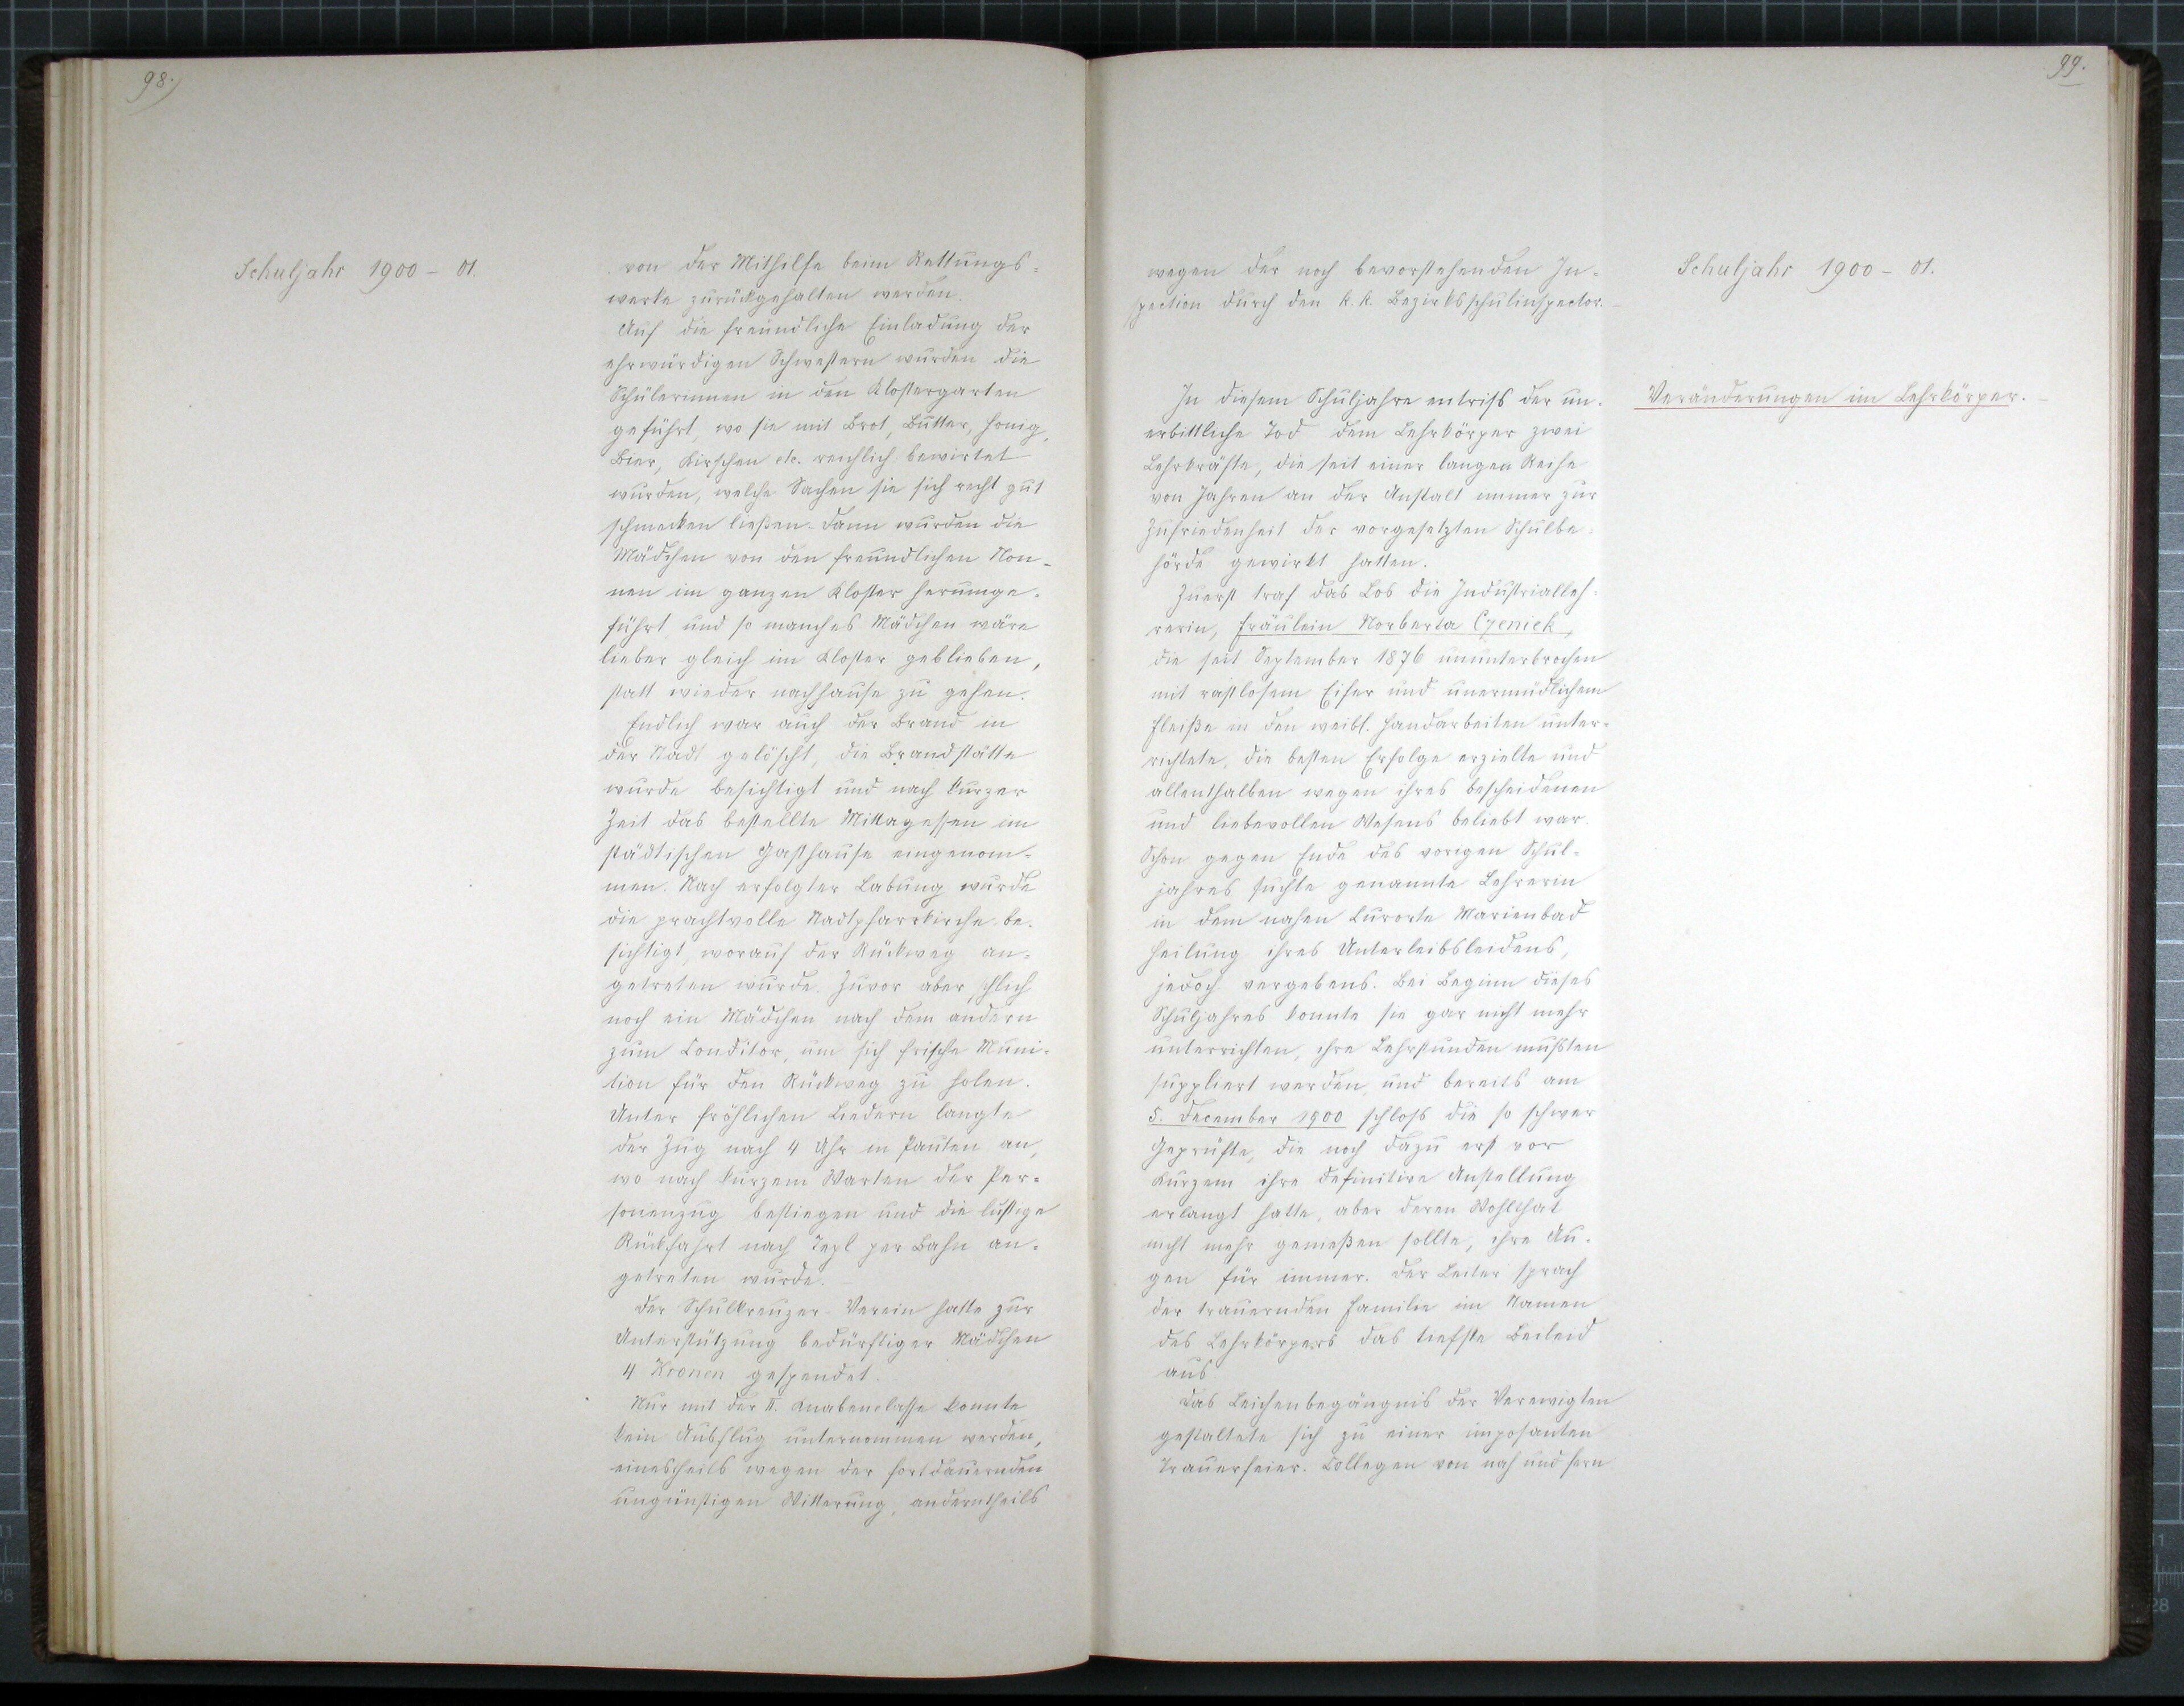 98.
Schuljahr 1900 - 01.
von der Mithilfe beim Rettungs-
werke zurückgehalten werden.
Auf die freundliche Einladung der
ehrwürdigen Schwestern wurden die
Schülerinnen in den Klostergarten
geführt, wo sie mit Brot, Butter, Honig,
Bier, Kirschen etc. reichlich bewirtet
wurden, welche Sachen sie sich recht gut
schmecken ließen. Dann wurden die
Mädchen von den freundlichen Non-
nen im ganzen Kloster herumge-
führt und so manches Mädchen wäre
lieber gleich im Kloster geblieben,
statt wieder nachhause zu gehen.
Endlich war auch der Brand in
der Stadt gelöscht, die Brandstätte
wurde besichtigt und nach kurzer
Zeit das bestellte Mittagessen im
städtischen Gasthause eingenom-
men. Nach erfolgter Labung wurde
die prachtvolle Stadtpfarrkirche be-
sichtigt, worauf der Rückweg an-
getreten wurde. Zuvor aber schlich
noch ein Mädchen nach dem andern
zum Conditor, um sich frische Muni-
tion für den Rückweg zu holen.
Unter fröhlichen Liedern langte
der Zug nach 4 Uhr in Pauten an,
wo nach kurzem Warten der Per-
sonenzug bestiegen und die lustige
Rückfahrt nach Tepl per Bahn an-
getreten wurde.
Der Schulkreuzer-Verein hatte zur
Unterstützung bedürftiger Mädchen
4 Kronen gespendet.
Nur mit der II. Knabenclasse konnte
kein Ausflug unternommen werden,
einestheils wegen der fortdauernden
ungünstigen Witterung, anderntheils
99.
Schuljahr 1900 - 01.
wegen der noch bevorstehenden In-
spection durch den k. k. Bezirksschulinspector.
Veränderungen im Lehrkörper.
In diesem Schuljahre entriss der un-
erbittliche Tod dem Lehrkörper zwei
Lehrkräfte, die seit einer langen Reihe
von Jahren an der Anstalt immer zur
Zufriedenheit der vorgesetzten Schulbe-
hörde gewirkt hatten.
Zuerst traf das Los die Industrialleh-
rerin, Fräulein Norberta Czeniek,
die seit September 1876 ununterbrochen
mit rastlosem Eifer und unermüdlichem
Fleiße in den weibl. Handarbeiten unter-
richtete, die besten Erfolge erzielte und
allenthalben wegen ihres bescheidenen
und liebevollen Wesens beliebt war.
Schon gegen Ende des vorigen Schul-
jahres suchte genannte Lehrerin
in dem nahen Curorte Marienbad
Heilung ihres Unterleibsleidens,
jedoch vergebens. Bei Beginn dieses
Schuljahres konnte sie gar nicht mehr
unterrichten, ihre Lehrstunden mußten
suppliert werden, und bereits am
5. December 1900 schloss die so schwer
Geprüfte, die noch dazu erst vor
Kurzem ihre definitive Anstellung
erlangt hatte, aber deren Wohlthat
nicht mehr genießen sollte, ihre Au-
gen für immer. Der Leiter sprach
der trauernden Familie im Namen
des Lehrkörpers das tiefste Beileid
aus.
Das Leichenbegängnis der Verewigten
gestaltete sich zu einer imposanten
Trauerfeier. Collegen von nah und fern